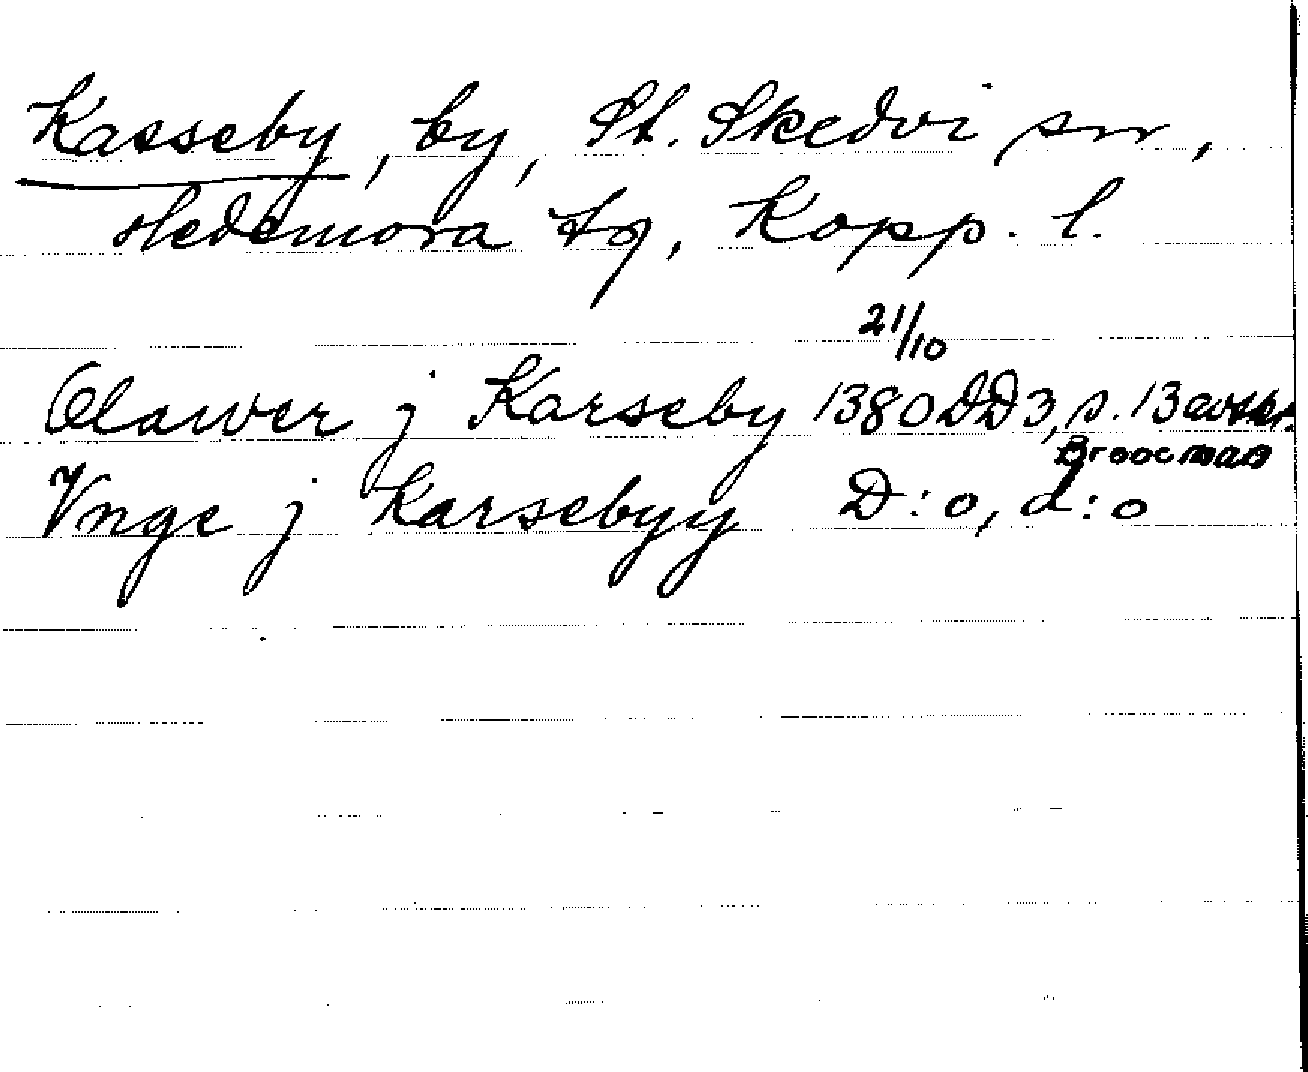 Kasseby, by, St. Skedvi sn,
Hedemora tg, Kopp. l.
21/10
Olawer j Karseby 1380 DD3, s. 13 avskr.
Broocman
Vnge j Karsebyy D:o, d:o